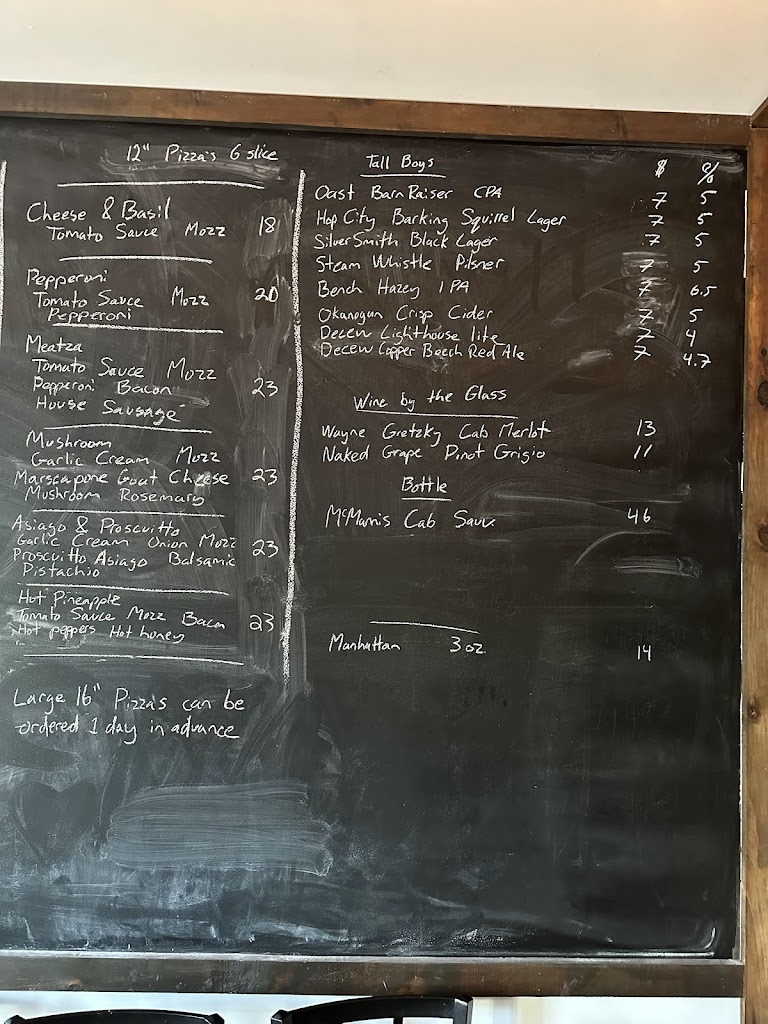 12" Pizza's 6 slice
Cheese & Basil
Tomato Sauce Mozz 18
Pepperoni
Tomato Sauce Mozz 20
Pepperoni
Meatza
Tomato Sauce Mozz
Pepperoni Bacon 23
House Sausage
Mushroom
Garlic Cream Mozz
Marscapone Goat Cheese 23
Mushroom Rosemary
Asiago & Proscuitto
Garlic Cream Onion Mozz
Proscuitto Asiago Balsamic 23
Pistachio
Hot Pineapple
Tomato Sauce Mozz Bacon 23
Hot peppers Hot honey
Large 16" Pizza's can be
ordered 1 day in advance
Tall Boys $ %
Oast Barn Raiser CPA 7 5
Hop City Barking Squirrel Lager 7 5
SilverSmith Black Lager 7 5
Steam Whistle Pilsner 7 5
Bench Hazey IPA 7 6.5
Okanogan Crisp Cider 7 5
Decew Lighthouse lite 7 4
Decew Copper Beech Red Ale 7 4.7
Wine by the Glass
Wayne Gretzky Cab Merlot 13
Naked Grape Pinot Grigio 11
Bottle
McManis Cab Sauv 46
Manhattan 3 oz 14